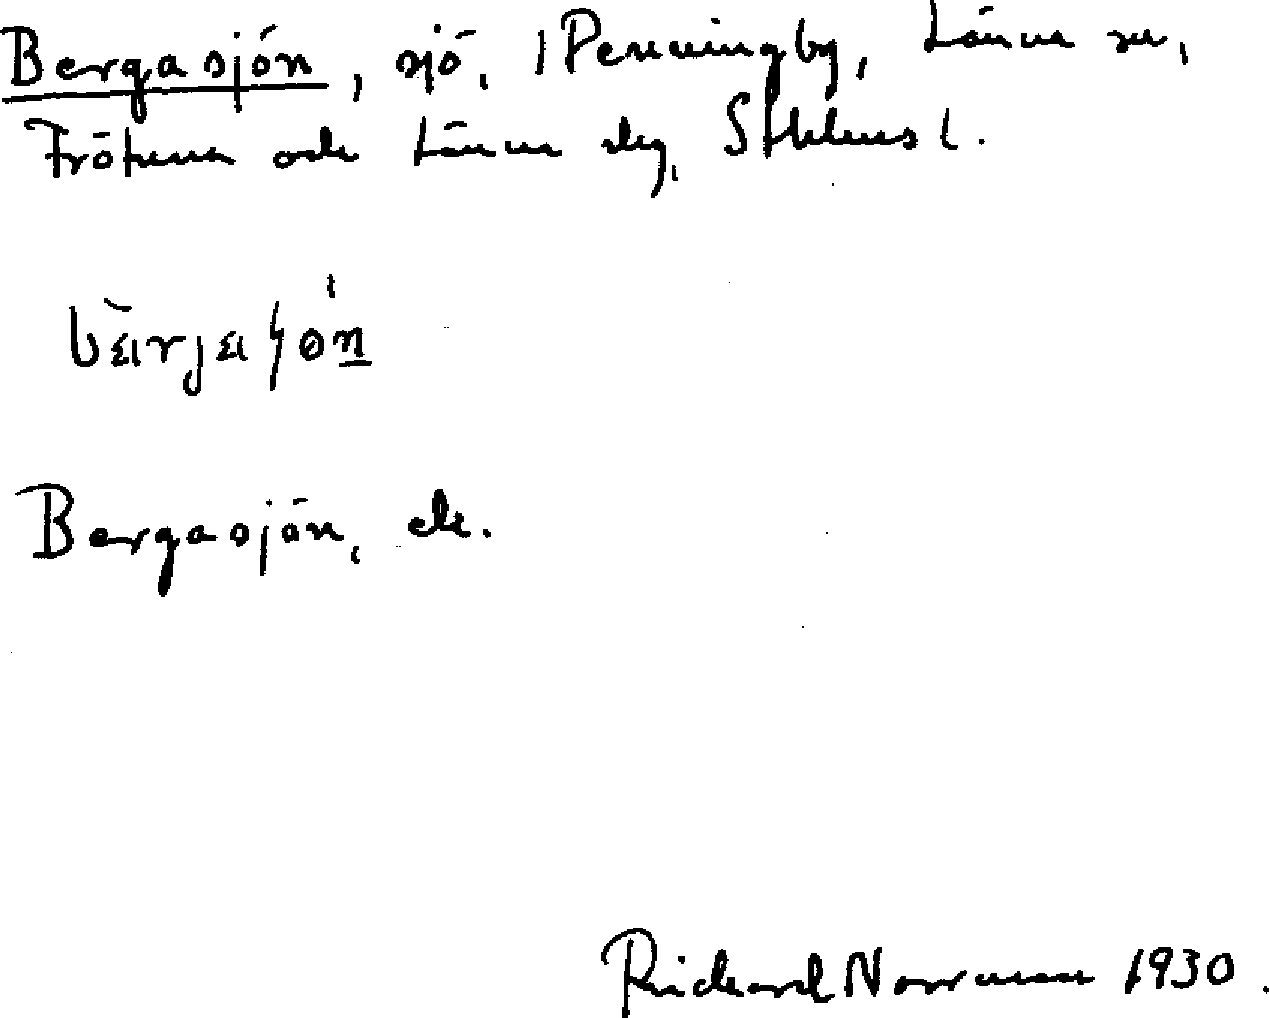 Bergasjön, sjö, Penningby, Länna sn,
Frötuna och Länna skg, Sthlms l.
Bergasjön, ek.
Richard Norrman 1930.